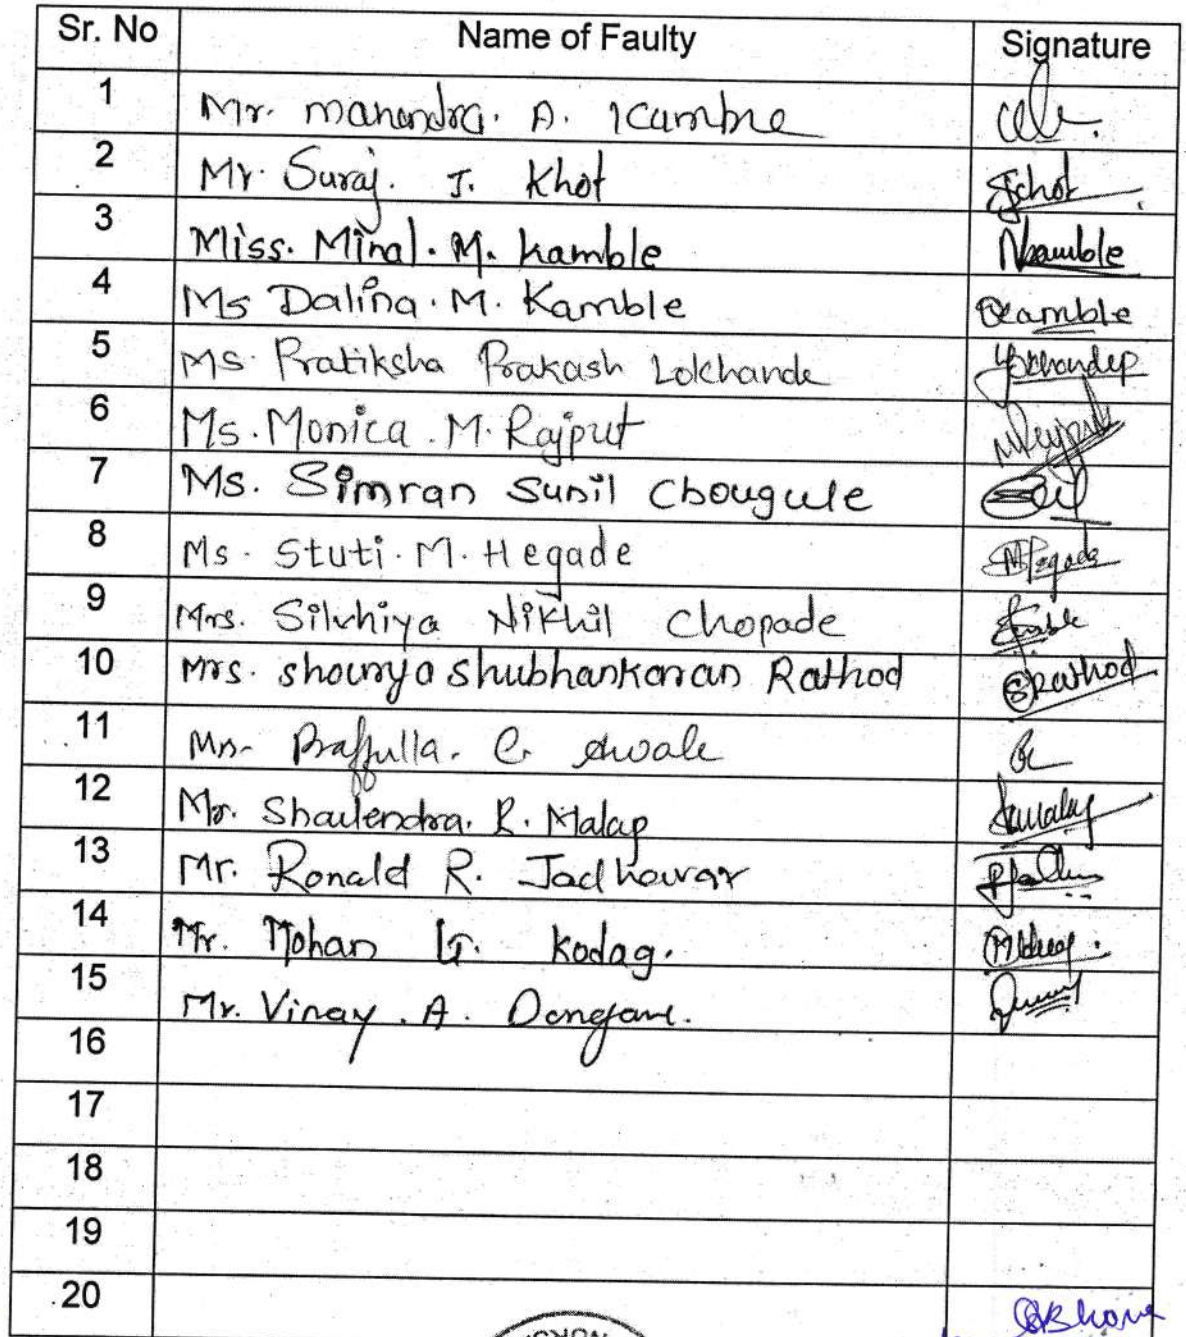 Sr. No Name of Faulty Signature
1 Mr. Mahendra. A. Kamble
2 Mr. Suraj. J. Khot SJkhot
3 Miss. Minal. M. Kamble Mkamble
4 Ms Dalina. M. Kamble Dkamble
5 Ms. Pratiksha Prakash Lokhande Lokhandep
6 Ms. Monica. M. Rajput MRajput
7 Ms. Simran Sunil Chougule
8 Ms. Stuti. M. Hegade SMHegade
9 Mrs. Silvhiya Nikhil Chopade
10 Mrs. Shourya Shubhankaran Rathod SRathod
11 Praffulla. C. Awale
12 Mr. Shailendra. R. Malap
13 Mr. Ronald R. Jadhawar
14 Mr. Mohan G. Kodag.
15 Mr. Vinay. A. Dongare.
16
17
18
19
20